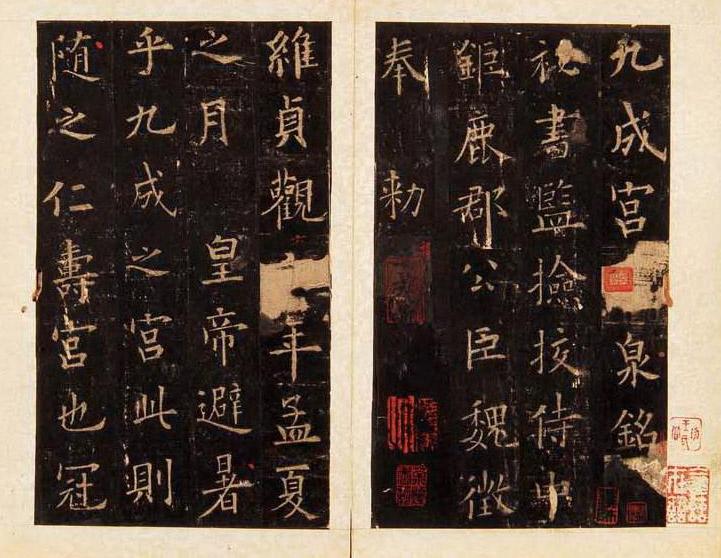 九成宮泉銘
祕書監撿挍侍中
鉅鹿郡公臣魏徵
奉勑
維貞觀年孟夏
之月皇帝避暑
乎九成之宮此則
隨之仁壽宮也冠